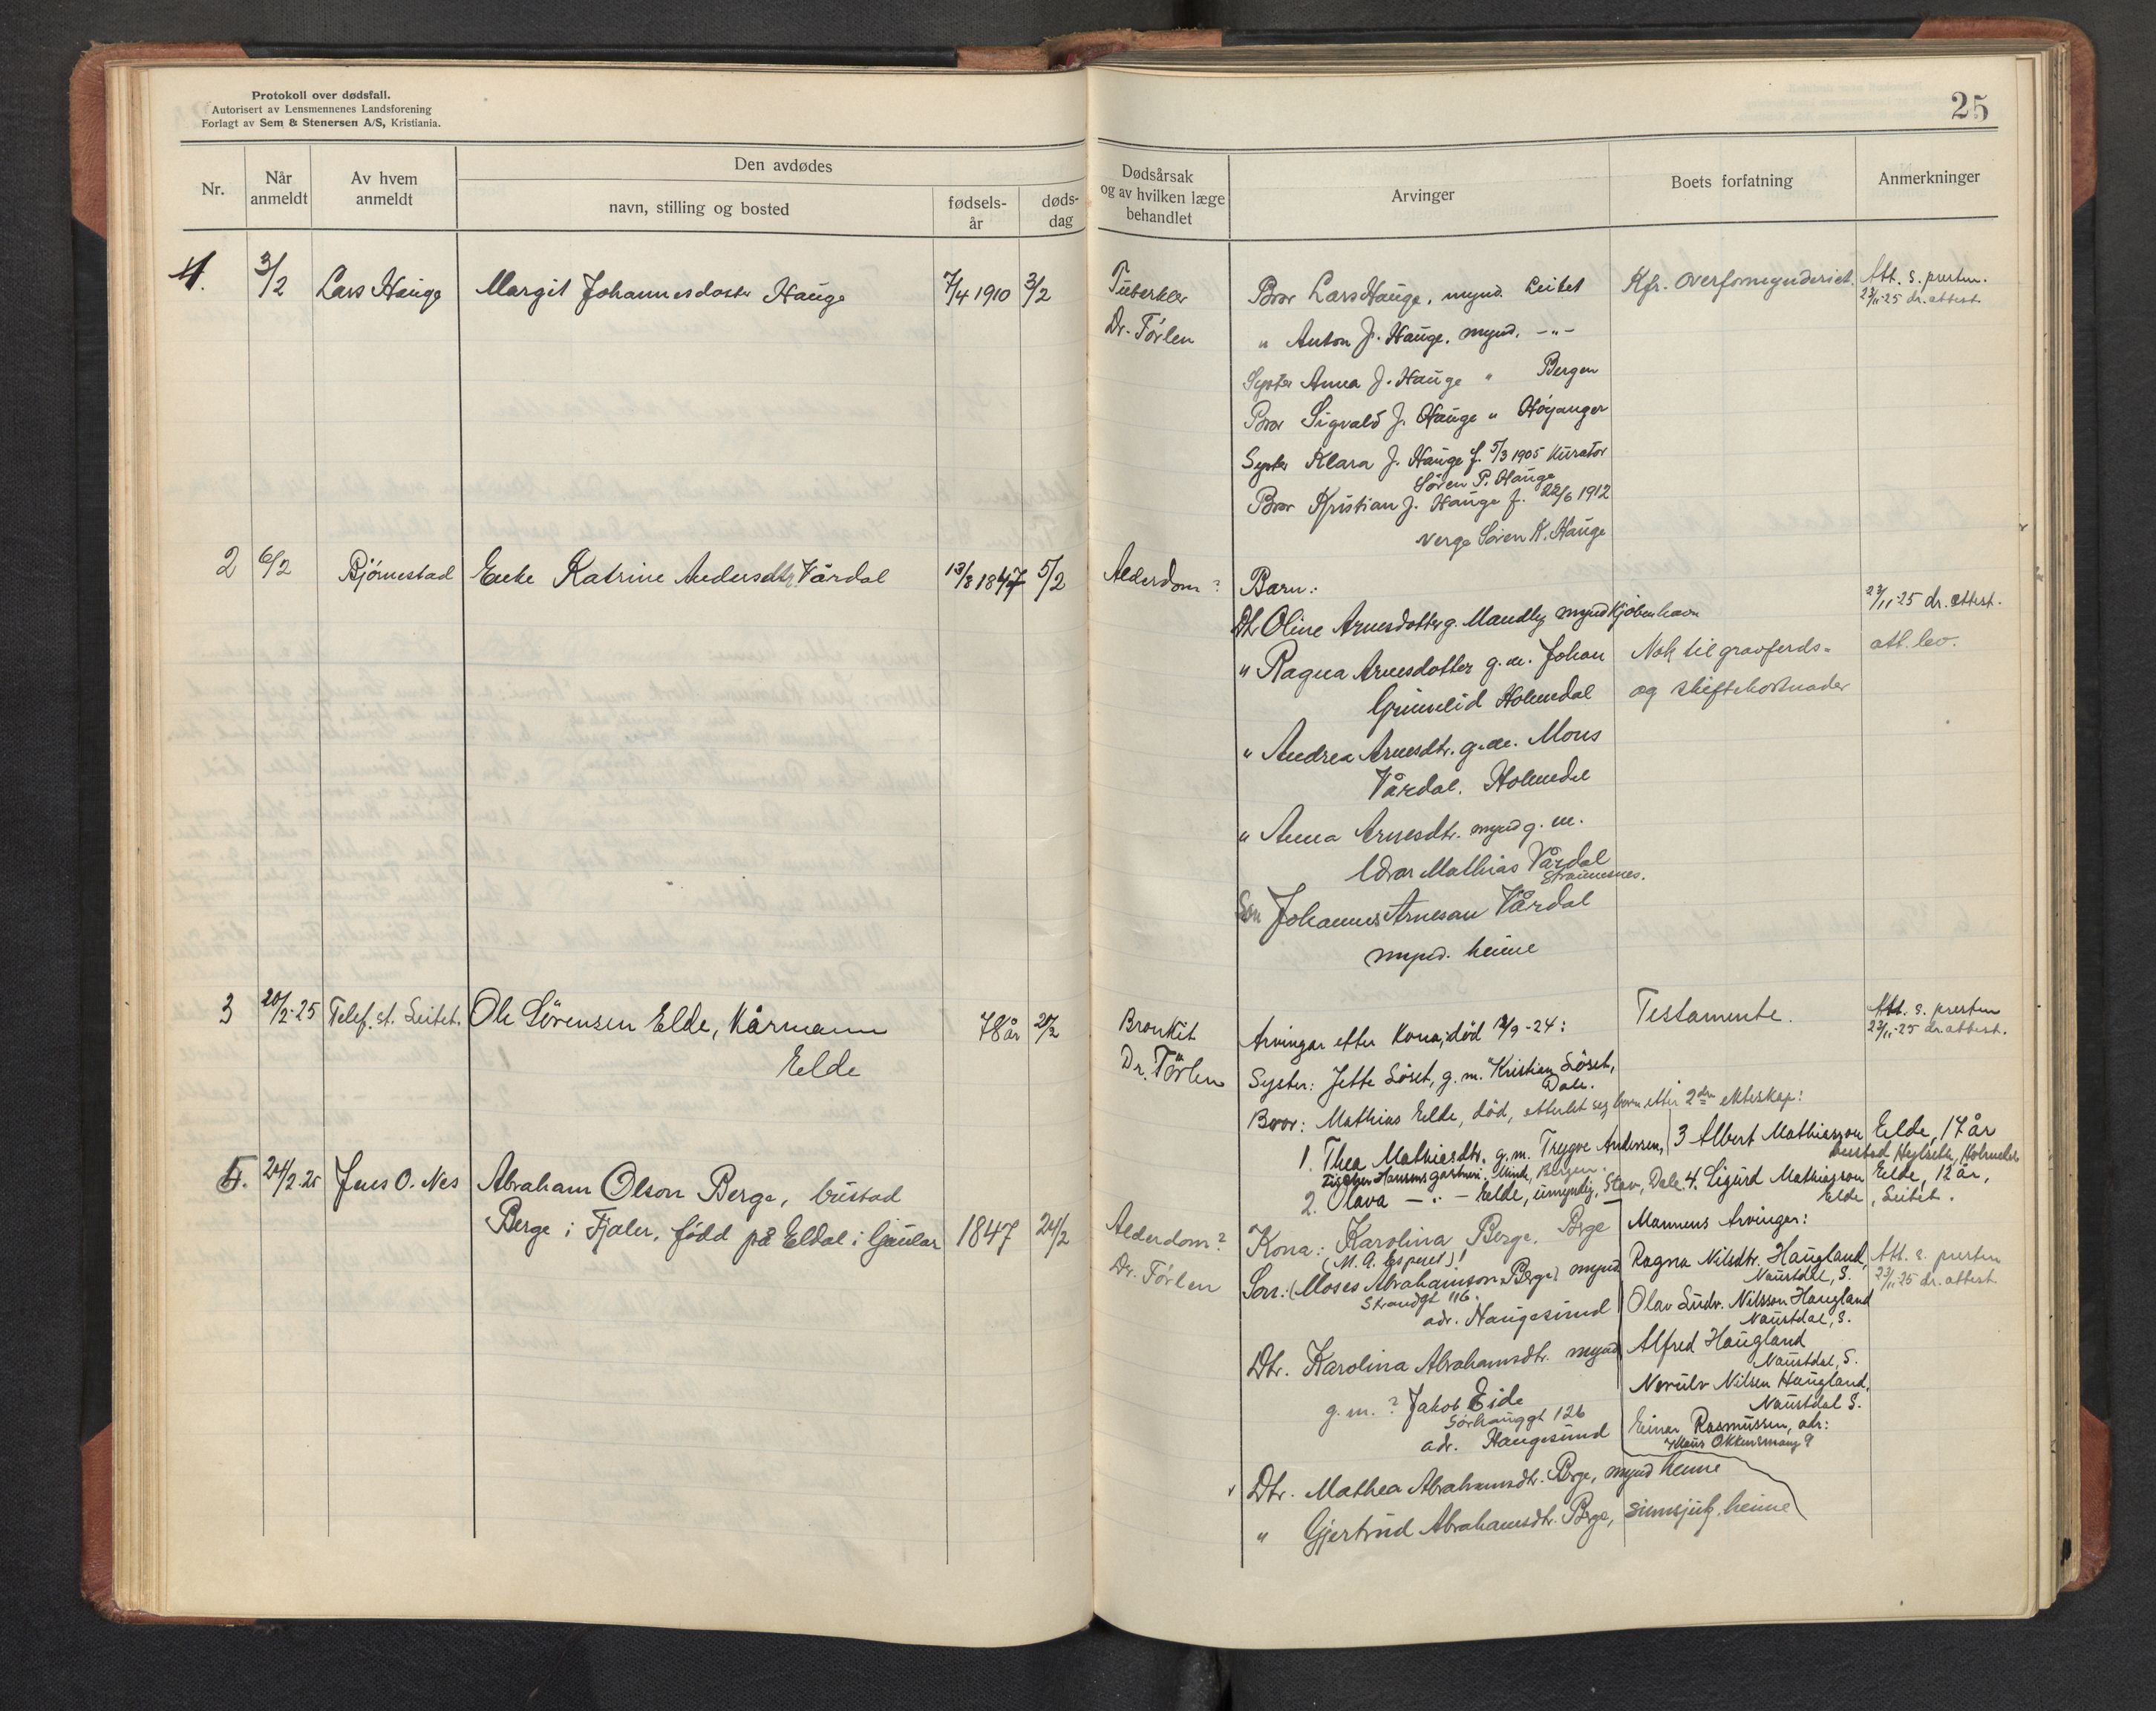 Protokoll over dødsfall.
Autorisert av Lensmennenes Landsforening
Forlagt av Sem & Stenersen A/S, Kristiania.
25
Nr.
Når anmeldt
Av hvem anmeldt
Den avdødes
navn, stilling og bosted
fødsels-år
døds-dag
Dødsårsak
og av hvilken læge
behandlet
Arvinger
Boets forfatning
Anmerkninger
1. 3/2 Lars Hauge Margit Johannesdotter Hauge 7/4 1910 3/2
Tuberklor
Dr. Förlen
Bror Lars Hauge, mynd. Leitet
" Anton J. Hauge, mynd. -"-
Syster Anna J. Hauge " Bergen
Bror Sigvald J. Hauge " Höyanger
Syster Klara J. Hauge f. 5/3 1905 Kurator
Sören P. Hauge
Bror Kristian J. Hauge f. 22/6 1912
Verge Sören K. Hauge
Kfr. overformynderiet.
Att. s. presten.
23/11-25 dr. attest.
2 6/2 Bjørnestad Enke Katrine Andersdtr Vårdal 13/8 1847 5/2
Alderdom?
Barn:
Dtr Oline Arnesdotter g. Mandly mynd Kjöbenhavn
" Ragna Arnesdotter g. m. Johan
Grimelid Holmedal
" Andrea Arnesdtr. g. m. Mons
Vårdal. Holmedal
" Anna Arnesdtr. mynd g. m.
Edvar Mathias Vårdal
Straumsnes.
Son Johannes Arneson Vårdal
mynd. heime
Nok til gravferds-
og skiftekostnader
23/11-25 dr. attest.
att. lev.
3 20/2-25 Telef. st. Leitet. Ole Sörensen Elde, Kårmann 78 år 20/2
Elde
Bronkit
Dr. Törlen
Arvingar etter Kona, död 2/9-24:
Syster: Jette Löset, g. m. Kristian Löset,
Dale.
Bror: Mathias Elde, död, etterlet seg born etter 2den ekteskap:
1. Thea Mathiasdtr. g. m. Trygve Andersen,
Mink, Bergen.
2. Olava -"- Elde, umyndig, Stav, Dale.
3 Albert Mathiasson Elde, 17 år
bustad Heilseth, Holmedal
4. Sigurd Mathiasson Elde, 12 år,
Elde, Leitet.
Testamente.
Att. s. presten
23/11-25 dr. attest.
4. 24/2-25 Jens O. Nes Abraham Olson Berge, bustad
Berge i Fjaler, född på Eldal i Gaular 1847 24/2
Alderdom?
Dr. Förlen
Kona: Karolina Berge, Berge
(M. A. Espeset)!
Son: (Moses Abrahamson Berge) mynd
Strandgt 116.
adr. Haugesund
Dtr. Karolina Abrahamsdtr. mynd
g. m. ? Jakob Eide
Sörhauggt 126
adr. Haugesund
Dtr. Mathea Abrahamsdtr. Berge, mynd heime
" Gjertrud Abrahamsdtr. Berge, sinnsjuk, heime
Mannens Arvinger:
Ragna Nilsdtr. Haugland,
Naustdal, S.
Olav Ludv. Nilsson Haugland
Naustdal, S.
Alfred Haugland
Naustdal, S.
Nilsen Haugland,
Naustdal S.
Einar Rasmussen, adr:
Klaus 9
Att. s. presten
23/11-25 dr. attest